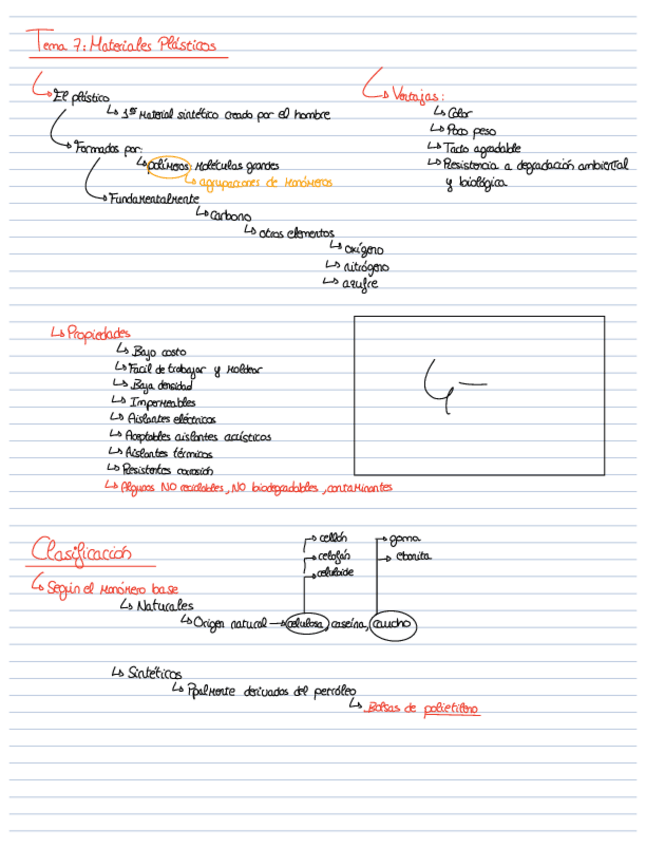 Tema 7: Materiales Plásticos
El plástico
1er Material sintético creado por el hombre
Formados por:
polímeros: moléculas grandes
agrupaciones de monómeros
Fundamentalmente
Carbono
otros elementos
oxígeno
nitrógeno
azufre
Ventajas:
Color
Poco peso
Tacto agradable
Resistencia a degradación ambiental
y biológica
Propiedades
Bajo costo
Fácil de trabajar y moldear
Baja densidad
Impermeables
Aislantes eléctricos
Aceptables aislantes acústicos
Aislantes térmicos
Resistentes corrosión
Algunos NO reciclables, NO biodegradables, contaminantes
Clasificación
Según el monómero base
Naturales
Origen natural → celulosa, caseína, caucho
celofán
celuloide
goma
ebonita
Sintéticos
Ppalmente derivados del petróleo
Bolsas de polietileno